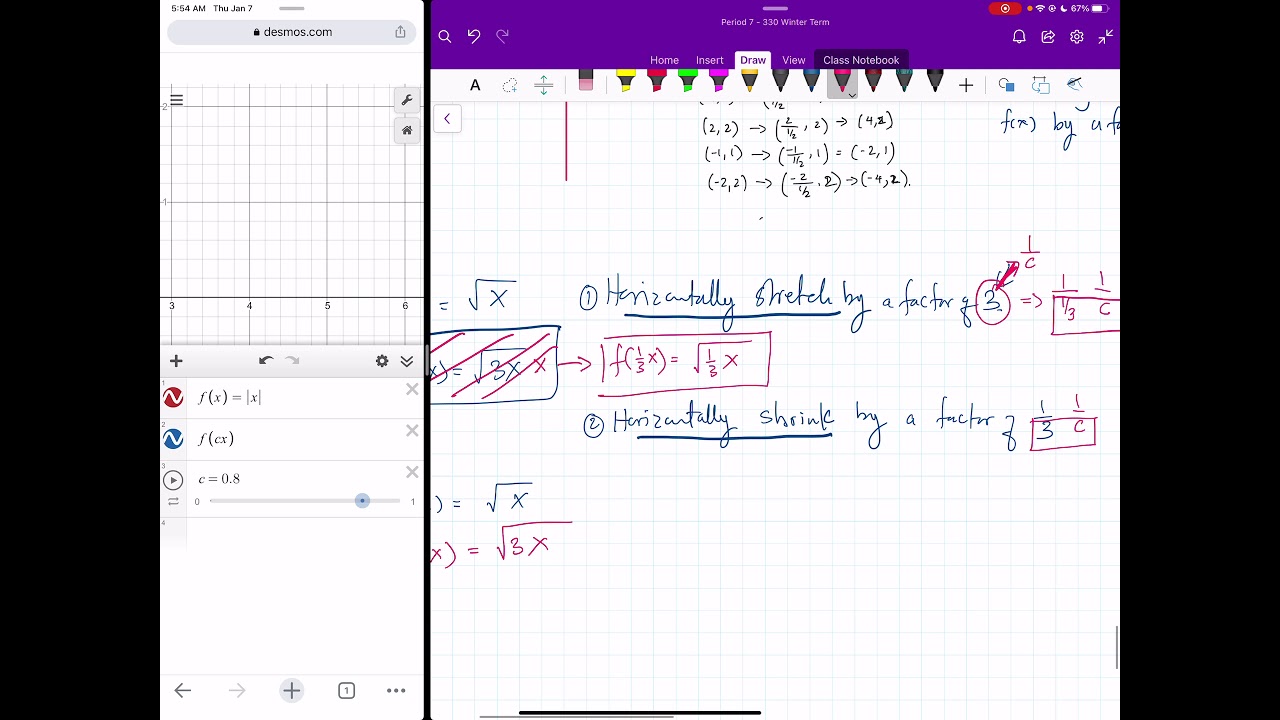 5:54 AM Thu Jan 7
desmos.com
2
1
3 4 5 6
1
f(x) = |x|
2
f(cx)
3
c = 0.8
0 1
4
1
67%
Period 7 - 330 Winter Term
Home Insert Draw View Class Notebook
A
(2,2) → (2/1/2, 2) → (4,2)
(-1,1) → (-1/1/2, 1) = (-2,1)
(-2,2) → (-2/1/2, 2) → (-4,2).
f(x) by a fa
= √x ① Horizontally stretch by a factor of 3 1/c => 1/1/3 1/c
x) = √3x x → f(1/3 x) = √1/3 x
② Horizontally shrink by a factor of 1/3 1/c
) = √x
x) = √3x